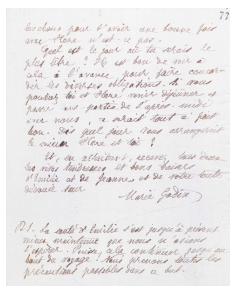 77
pour t'avoir une bonne fois
une Flore n'est-ce pas.
Quel est le jour où tu serais le
plus libre ? Il est bon de voir à
cela à l'avance, pour faire concor-
der les diverses obligations. Si vous
pouviez toi et Flore, venir déjeuner et
passer une partie de l'après-midi
chez nous, ce serait tout à fait
bon. Dis quel jour vous arrangerait
le mieux Flore et toi ?
Et, en attendant, recevez tous deux
les tendresses et bons baisers
d'Emilie et de Jeanne et de votre toute
dévouée sœur
Marie Godin
P.S. La santé d'Emilie s'est jusqu'à présent
mieux maintenue que nous n'osions
l'espérer. Puisse cela continuer jusqu'au
bout du voyage. Nous prenons toutes les
précautions possibles dans ce but.